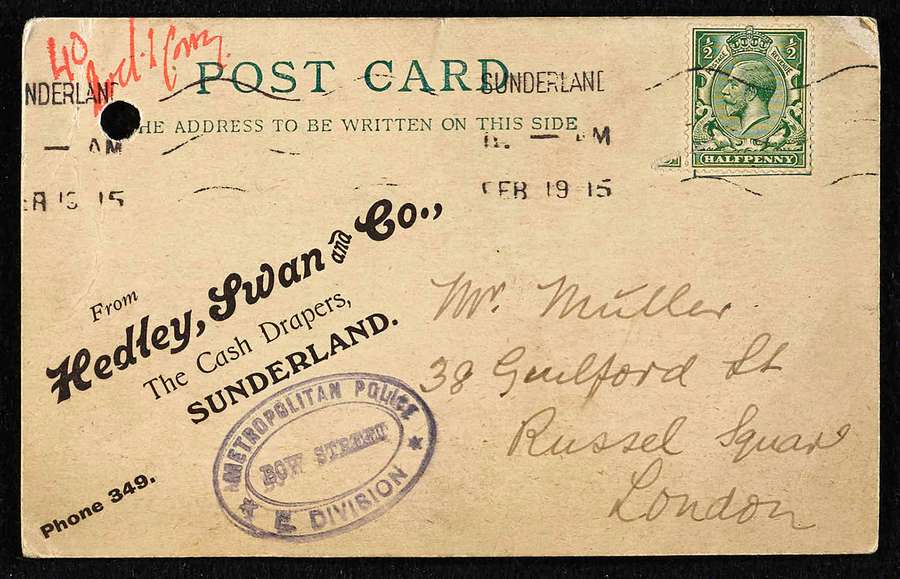 40
POST CARD
SUNDERLAND
SUNDERLAND
HE ADDRESS TO BE WRITTEN ON THIS SIDE
— AM
— AM
FEB 19 15
15
½ ½
POSTAGE REVENUE
HALFPENNY
From
Hedley, Swan and Co.,
The Cash Drapers,
SUNDERLAND.
Phone 349.
METROPOLITAN POLICE
BOW STREET
E DIVISION
Mr. Muller
38 Guilford St
Russel Square
London